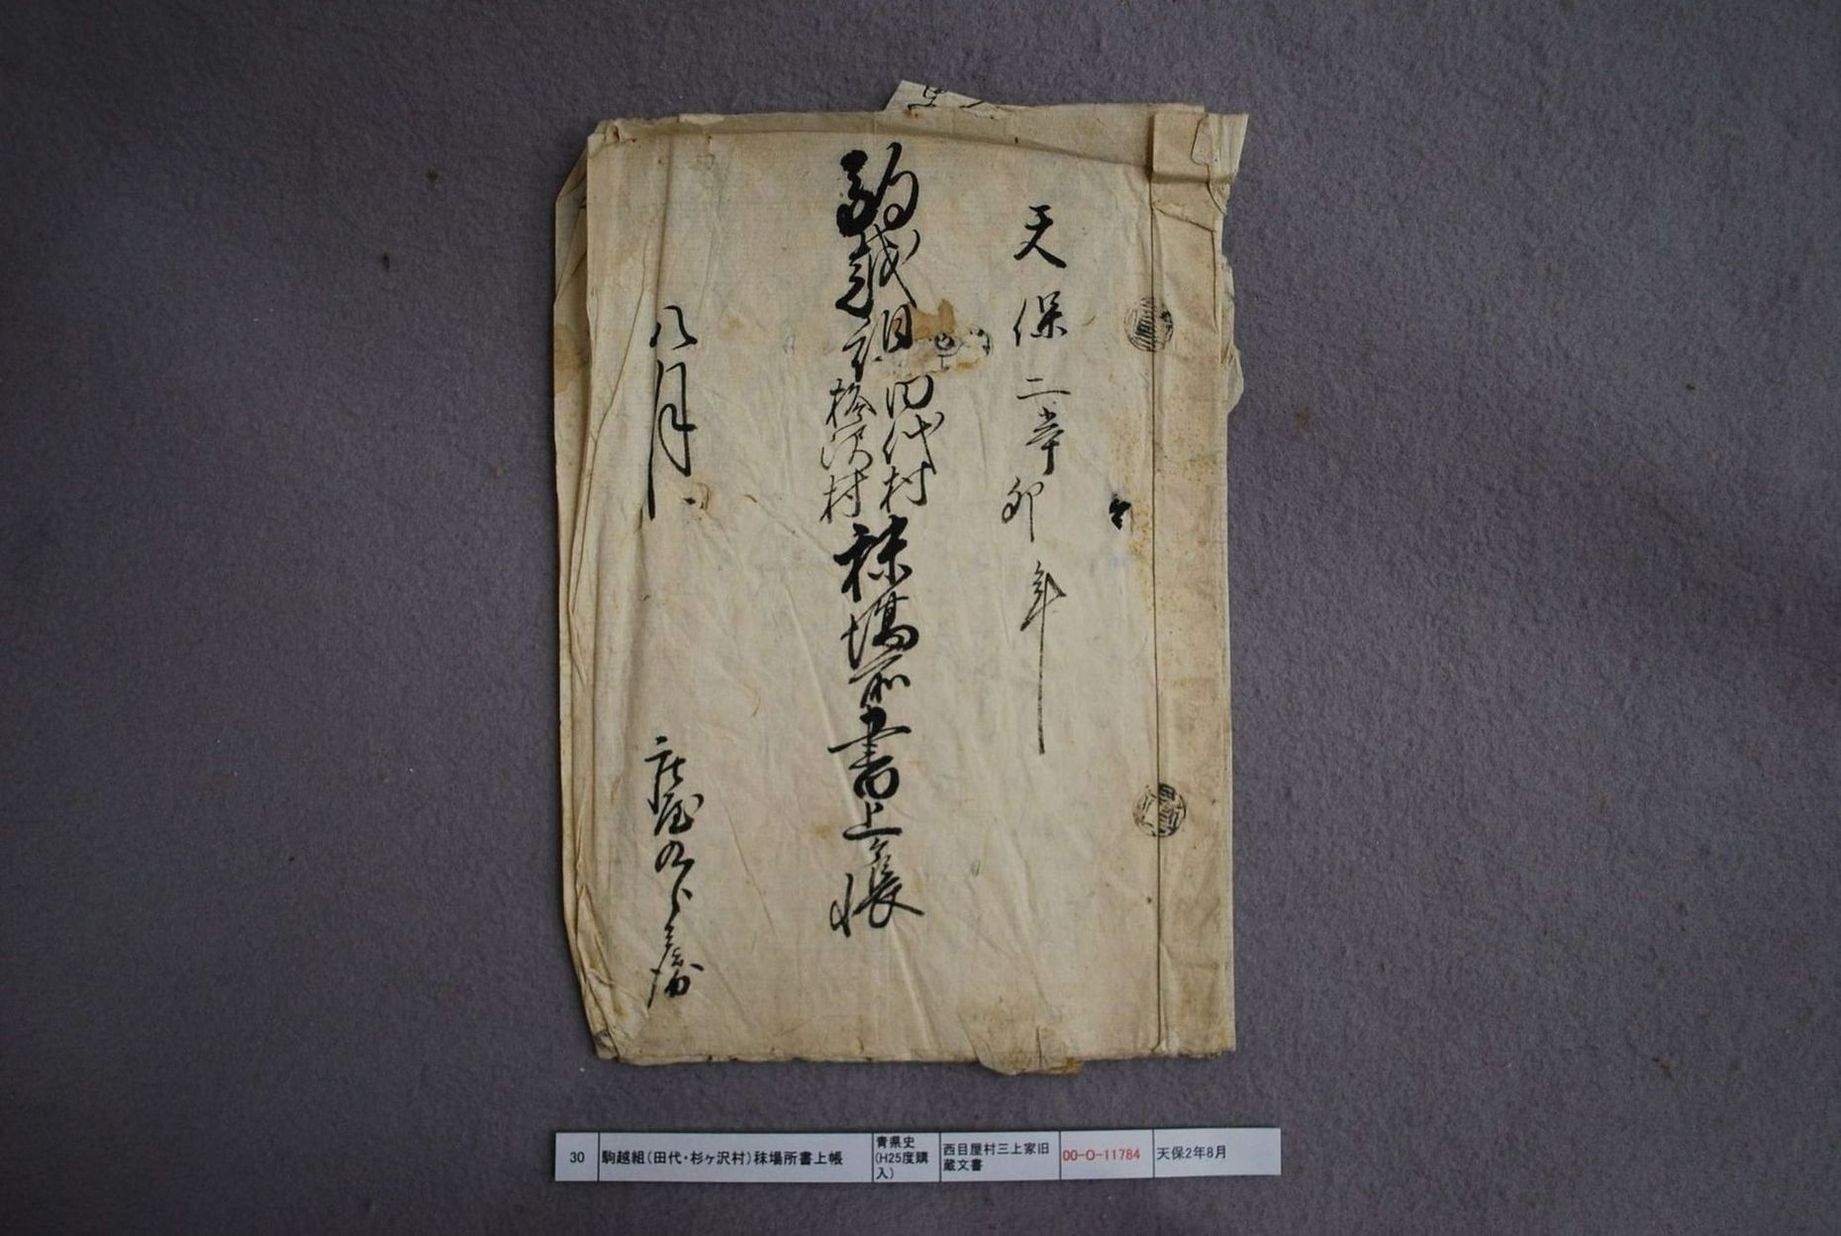 天保二辛卯年
駒越組
田代村
杉ヶ沢村
秣場所書上帳
八月
庄屋九郎兵衛
30
駒越組(田代・杉ヶ沢村)秣場所書上帳
青県史
(H25度購
入)
西目屋村三上家旧
蔵文書
00-O-11784
天保2年8月